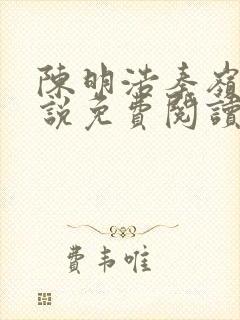 陳明浩秦嶺
說免費閱讀
費韦唯